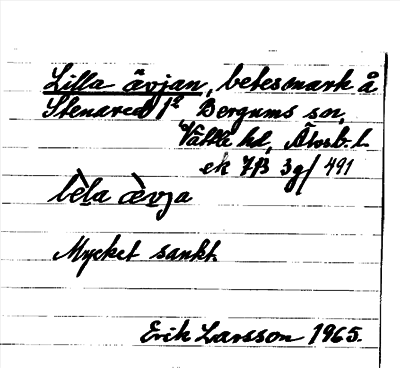 Lilla ävjan, betesmark å
Stenared 1² Bergums sn,
Vättle hd, Älvsb. l.
ek 7B 3g/ 491
lèla àevja
Mycket sankt.
Erik Larsson 1965.